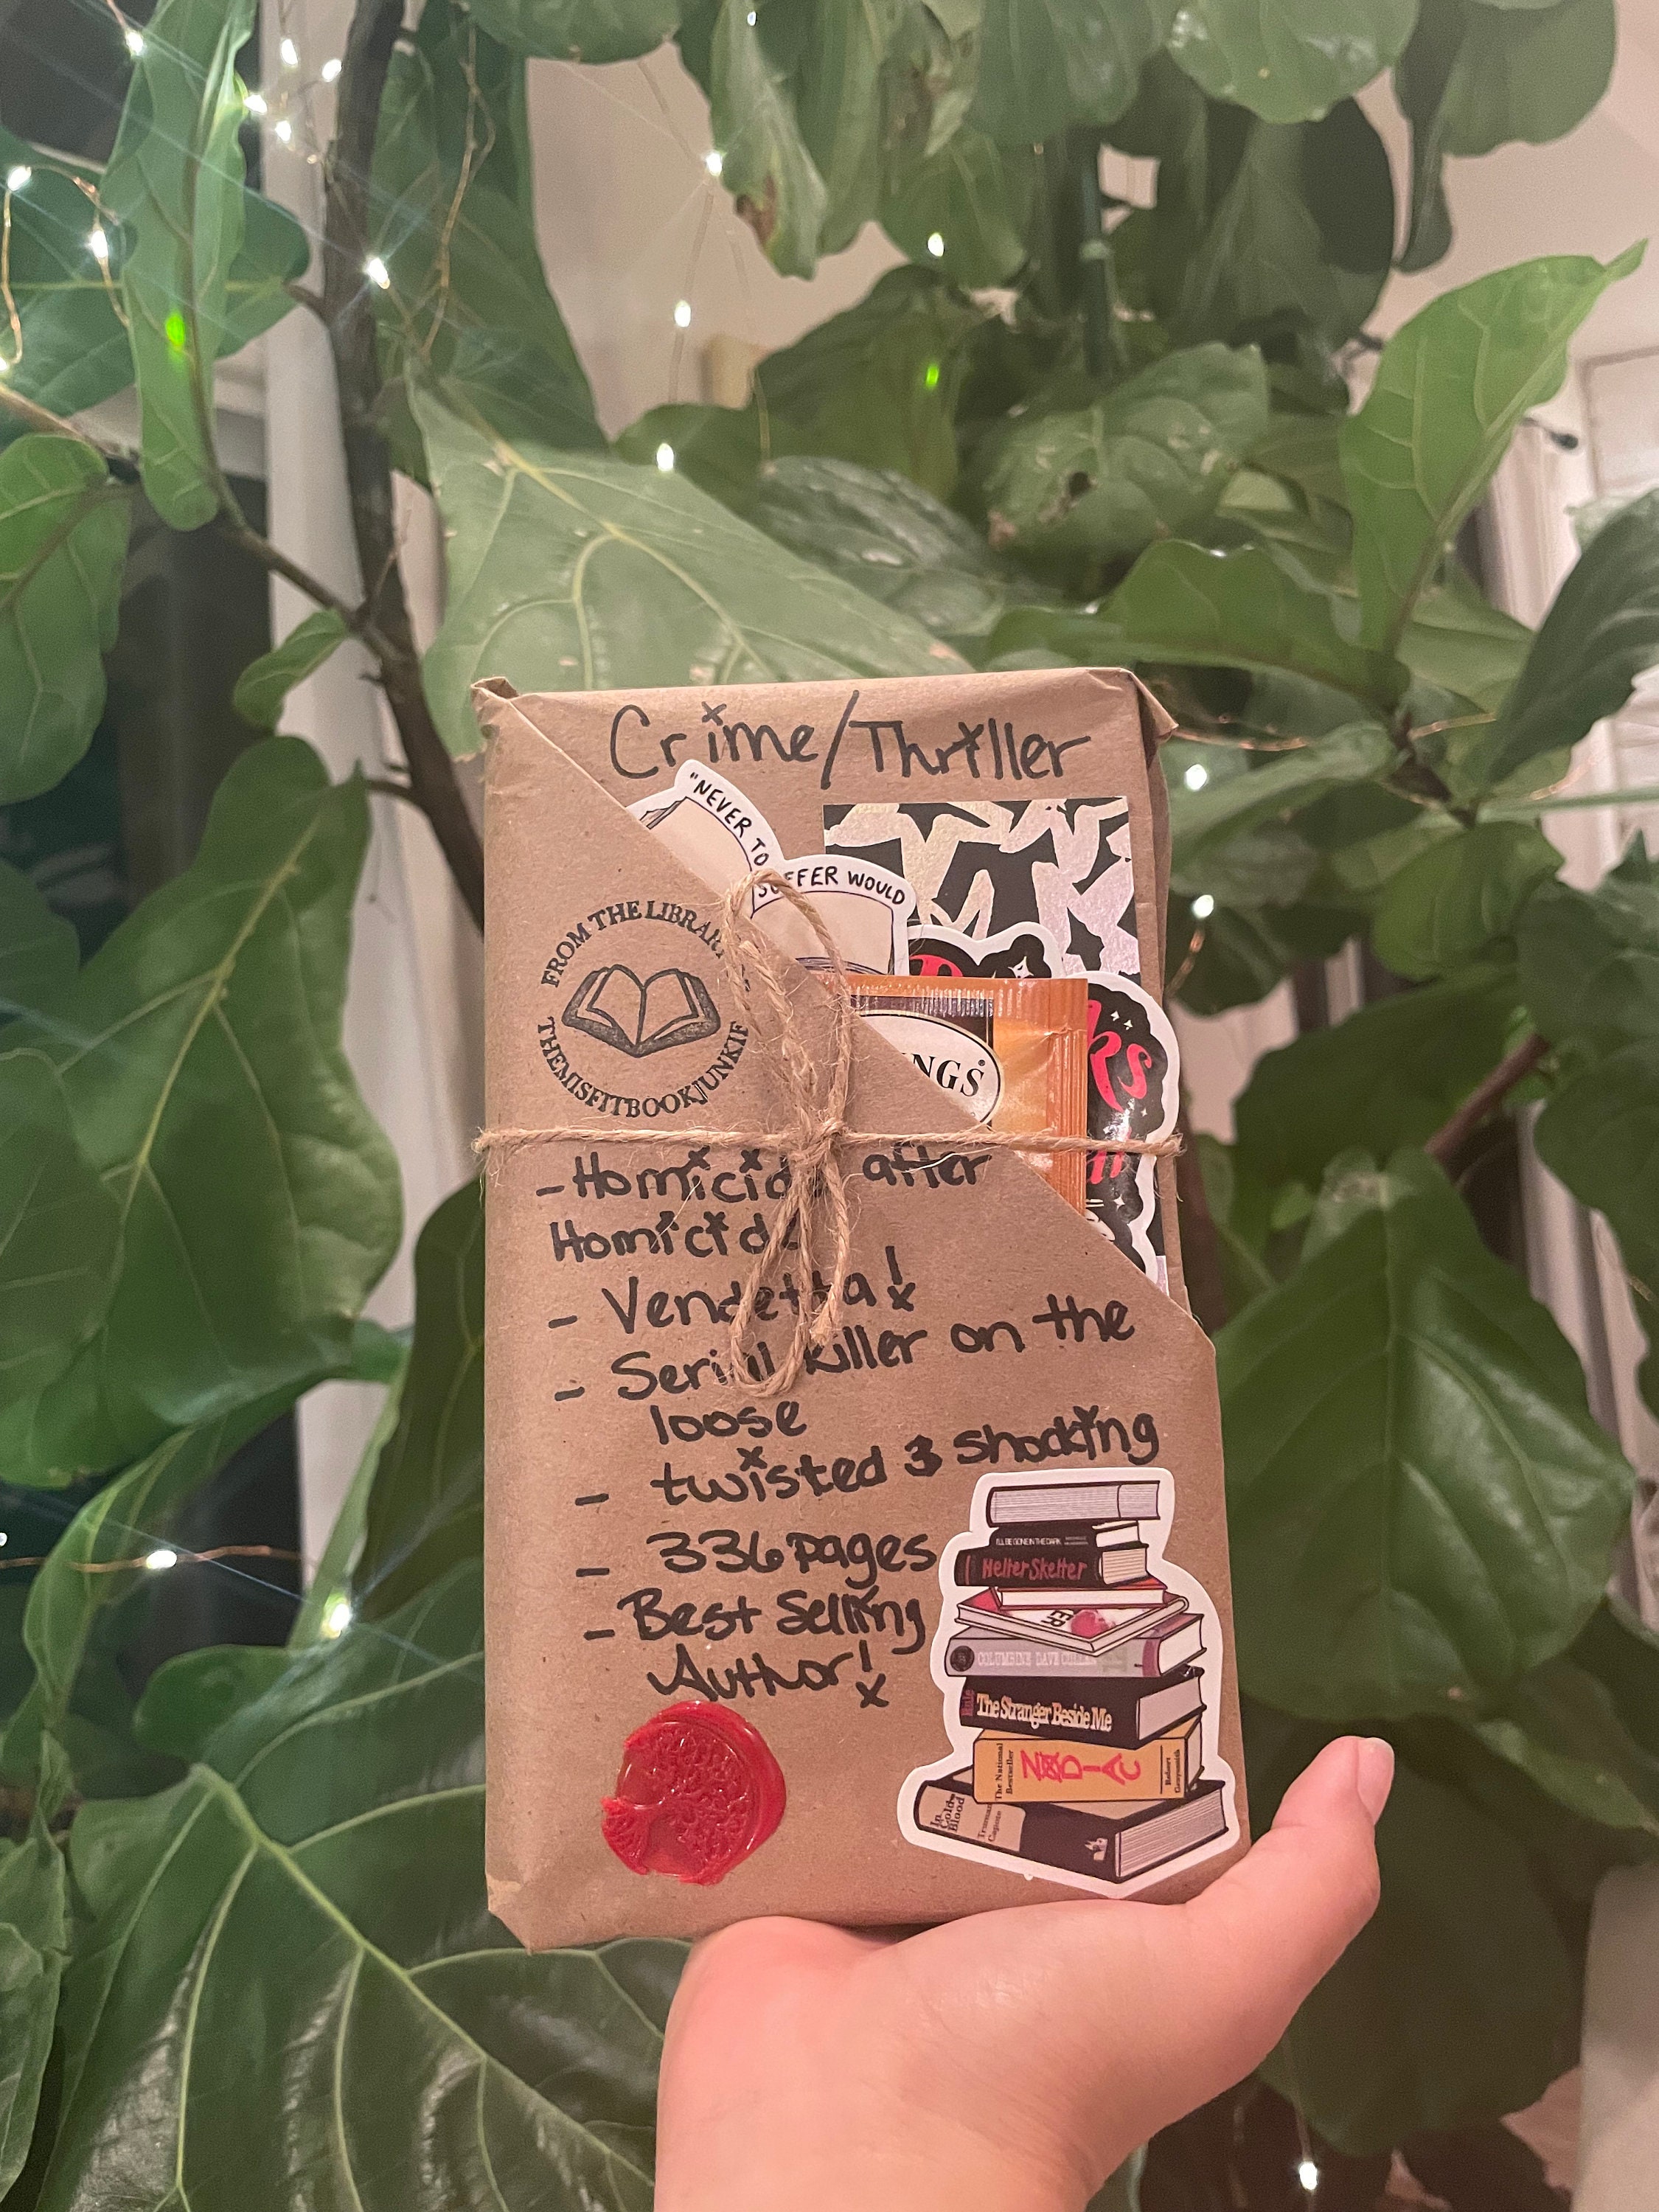 Crime/Thriller
"NEVER TO
SUFFER WOULD
FROM THE LIBRARY
THEMISFITBOOKJUNKIE
NGS
ks
- Homicide after
Homicide
- Vendetta!
- Serial killer on the
loose
- twisted & shocking
- 336 pages
- Best Selling
Author!
I'LL BE GONE IN THE DARK
Helter Skelter
ER
COLUMBINE DAVE CULLEN
Rule The Stranger Beside Me
The National Bestseller
ZODIAC
Robert Graysmith
In Cold Blood
Truman Capote